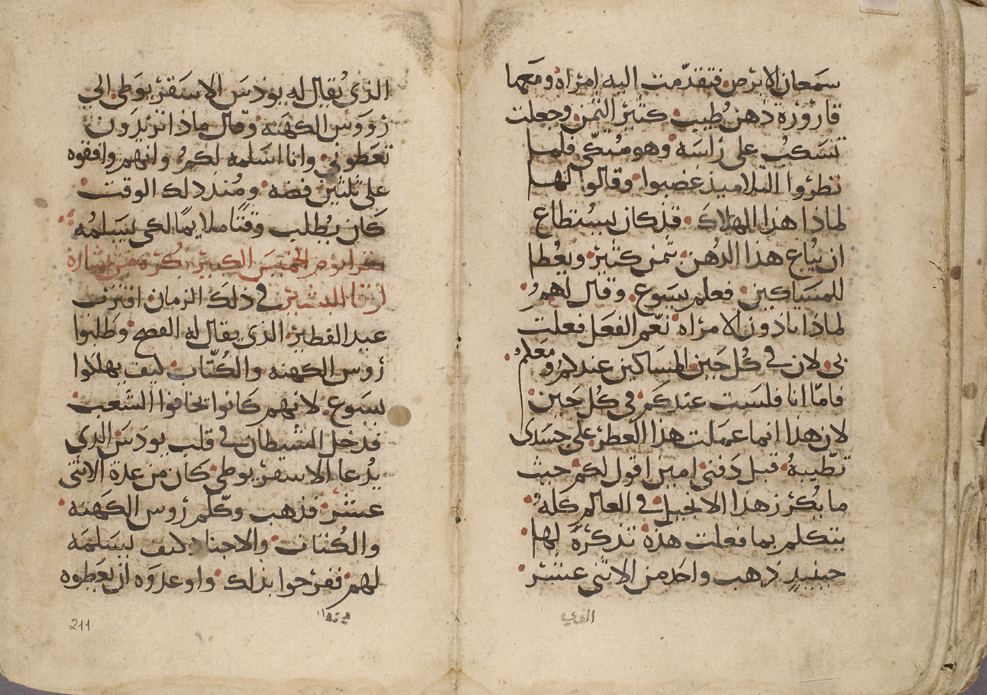 سمعان الابرص فتقدمت اليه امراه ومعها
قارورة دهن طيب كثير الثمن وجعلت
تسكب على راسه وهو متكي فلما
نظروا التلاميذ غضبوا وقالوا لهم
لماذا هذا الهلاك قد كان يستطاع
ان يباع هذا الدهن بثمن كثير ويعطا
للمساكين فعلم يسوع وقال لهم
لماذا تاذون الامراه نعم الفعل فعلت
بي لان في كل حين المساكين عندكم ومعكم
فامّا انا فلست عندكم في كل حين
لان هذا انما عملت هذا العطر على جسدى
تطيبه قبل دفني امين اقول لكم حيث
ما يكرز هذا الانجيل في العالم كله
يتكلم بما فعلت هذه تذكرة لها
حينيد ذهب واحد من الاثني عشر
الدي
الذي يُقال له يودس الاسقريوطي الي
رووس الكهنه وقال ماذا تريدون
تعطوني وانا اسلمه لكم وانهم وافقوه
على ثلثين فضه ومند دلك الوقت
كان يطلب وقتًا ملايمًا لكي يسلمه
يوم الخميس الكبير بكره من بشاره
لوقا البشير في دلك الزمان اقترب
عيد الفطير الذي يقال له الفصح وطلبوا
رؤس الكهنه والكُتّاب كيف يهلكوا
يسوع لانهم كانوا يخافوا الشعب
فدخل الشيطان في قلب يودس الدي
يدعا الاسقريوطي كان من عدة الاثنى
عشر فذهب وكلم رؤس الكهنه
والكُتاب والاجناد كيف يسلمه
لهم ففرحوا بدلك واوعدوه ان يعطوه
211